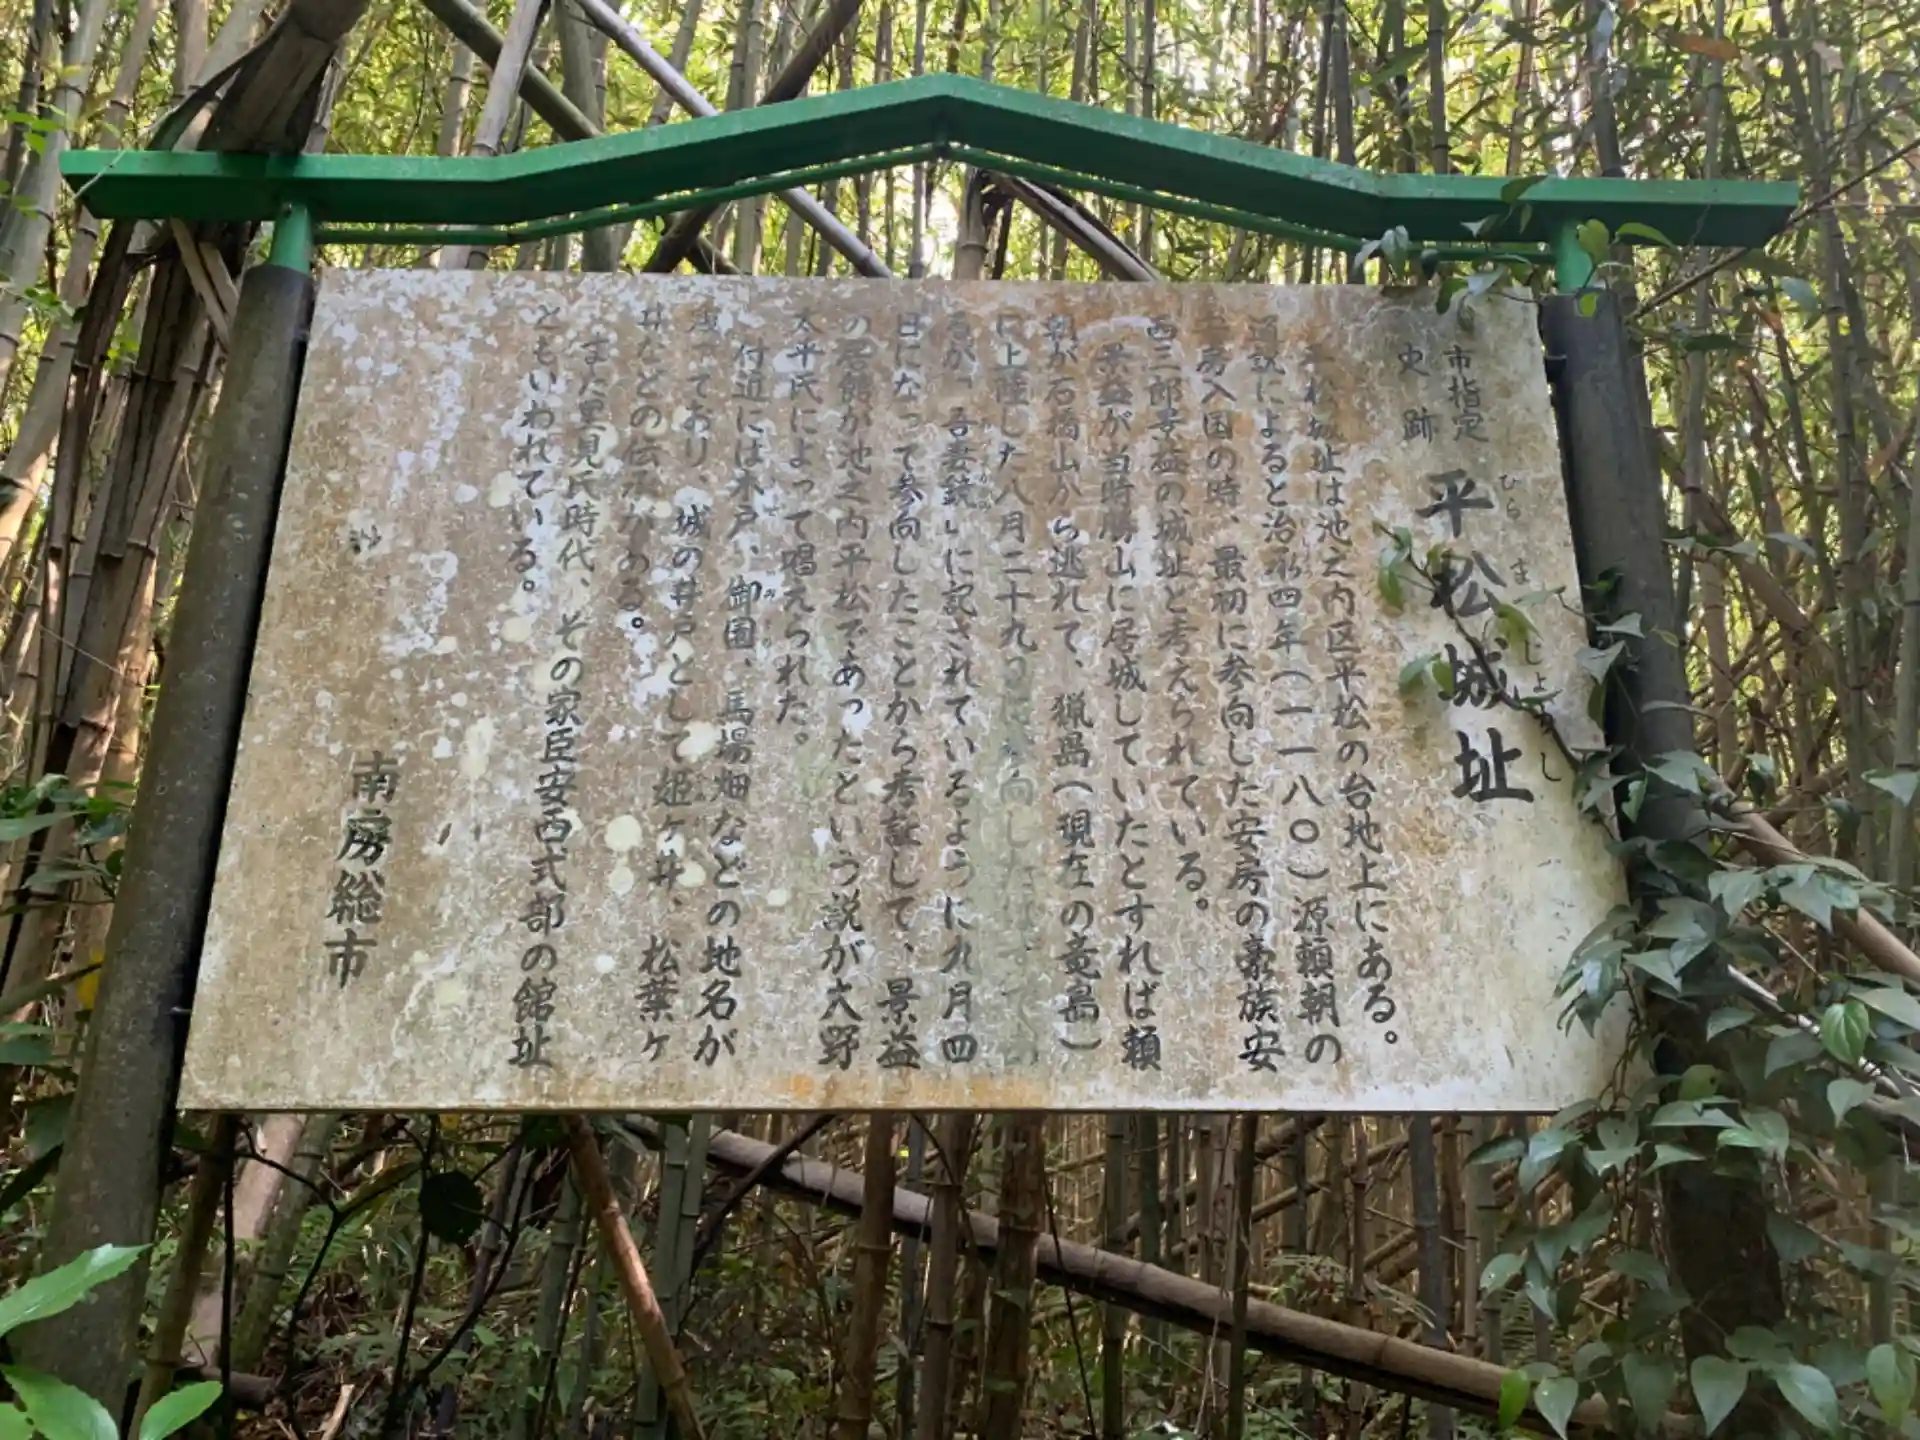 市指定
史跡
平松城址
ひらまつじょうし
平松城址は池之内区平松の台地上にある。
通説によると治承四年(一一八〇)源頼朝の
安房入国の時、最初に参向した安房の豪族安
西三郎景益の城址と考えられている。
景益が当時勝山に居城していたとすれば頼
朝が石橋山から逃れて、猟島(現在の竜島)
に上陸した八月二十九日に参向したはずであ
るが「吾妻鏡」に記されているように九月四
日になって参向したことから考証して、景益
の居館が池之内平松であったという説が大野
太平氏によって唱えられた。
付近には木戸、御園、馬場畑などの地名が
残っており、城の井戸として姫ヶ井、松葉ヶ
井などの伝承がある。
また里見氏時代、その家臣安西式部の館址
ともいわれている。
南房総市